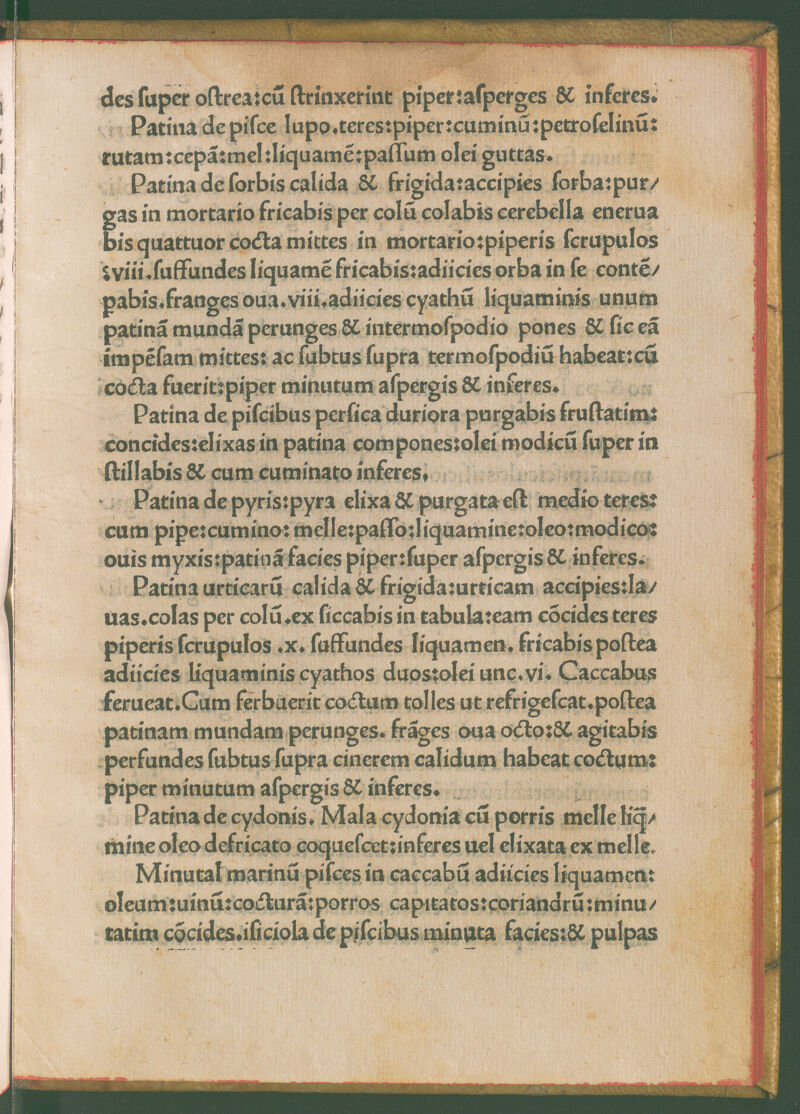 des ſuper oſtrea:cū ſtrinxerint piper:aſperges & inferes.
Patina de piſce lupo.teres:piper:cuminū:petroſelinū:
rutam:cepā:mel:liquamē:paſſum olei guttas.
Patina de ſorbis calida & frigida:accipies ſorba:pur/
gas in mortario fricabis per colū colabis cerebella enerua
bis quattuor cocta mittes in mortario:piperis ſcrupulos
:viii.ſuffundes liquamē fricabis:adiicies orba in ſe contē/
pabis.franges oua.viii.adiicies cyathū liquaminis unum
patinā mundā perunges & intermoſpodio pones & ſic eā
impēſam mittes: ac ſubtus ſupra termoſpodiū habeat:cū
cocta fuerit:piper minutum aſpergis & inferes.
Patina de piſcibus perſica duriora purgabis fruſtatim:
concides:elixas in patina compones:olei modicū ſuper in
ſtillabis & cum cuminato inferes.
Patina de pyris:pyra elixa & purgata eſt medio teres:
cum pipe:cumino: melle:paſſo:liquamine:oleo:modico:
ouis myxis:patinā facies piper:ſuper aſpergis & inferes.
Patina urticarū calida & frigida:urticam accipies:la/
uas.colas per colū.ex ſiccabis in tabula:eam cōcides teres
piperis ſcrupulos .x. ſuffundes liquamen. fricabis poſtea
adiicies liquaminis cyathos duos:olei unc.vi. Caccabus
ferueat.Cum ferbuerit coctum tolles ut refrigeſcat.poſtea
patinam mundam perunges. frāges oua octo:& agitabis
perfundes ſubtus ſupra cinerem calidum habeat coctum:
piper minutum aſpergis & inferes.
Patina de cydonis. Mala cydonia cū porris melle liq̄/
mine oleo defricato coqueſcet:inferes uel elixata ex melle.
Minutal marinū piſces in caccabū adiicies liquamen:
oleum:uinū:cocturā:porros capitatos:coriandrū:minu/
tatim cōcides.iſiciola de piſcibus minuta facies:& pulpas